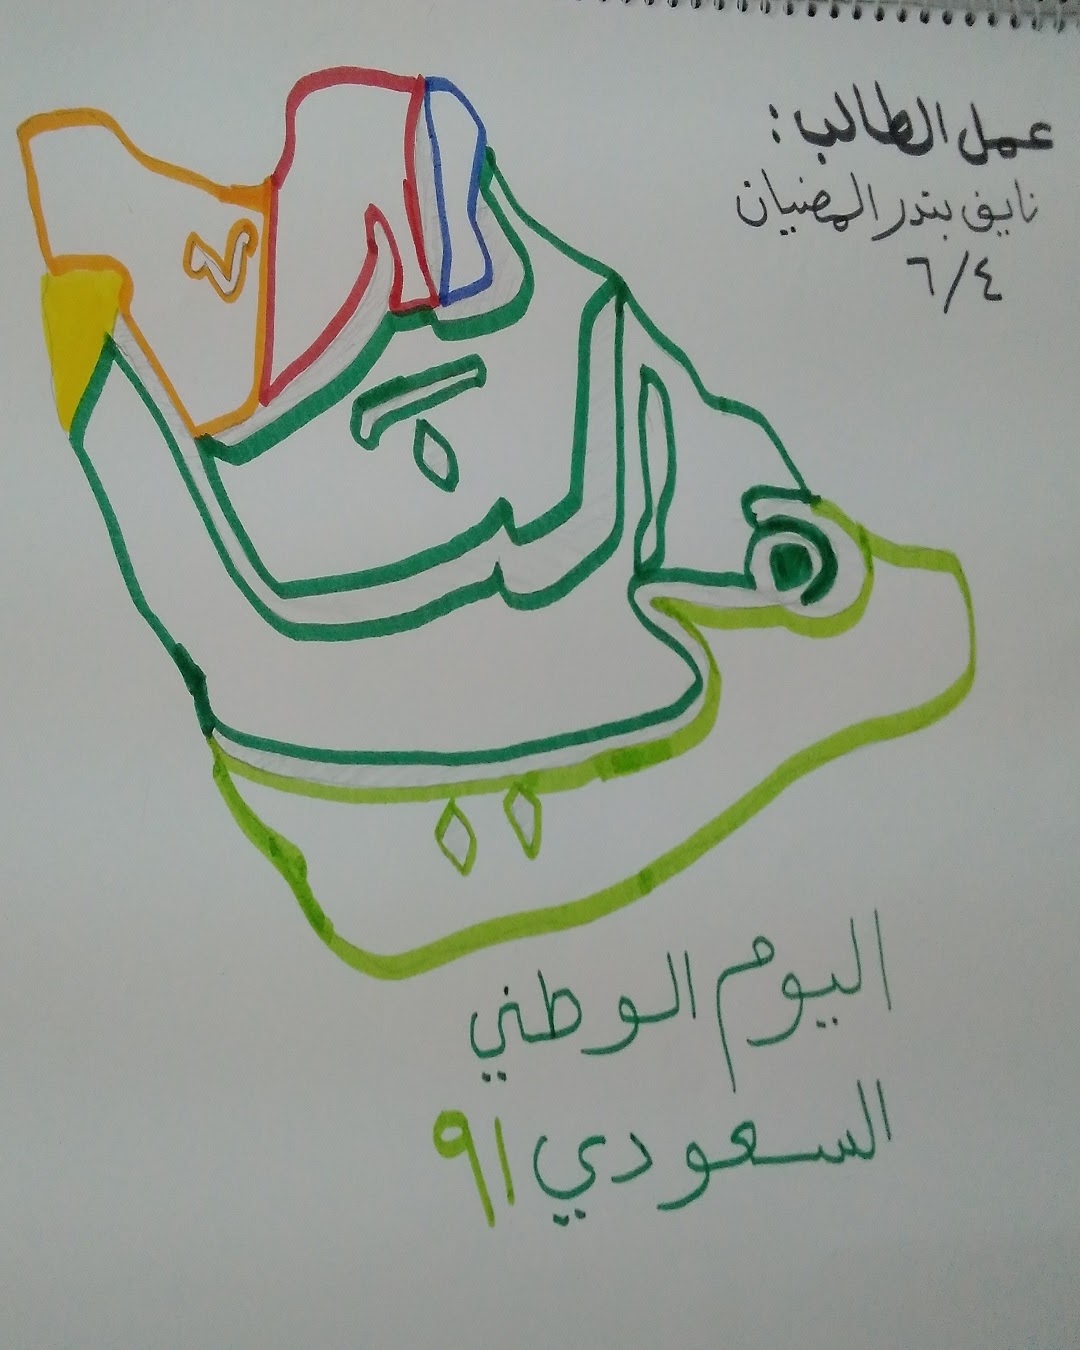 عمل الطالب:
نايف بندر المضيان
٦/٤
هي لنا دار
اليوم الوطني
السعودي ٩١